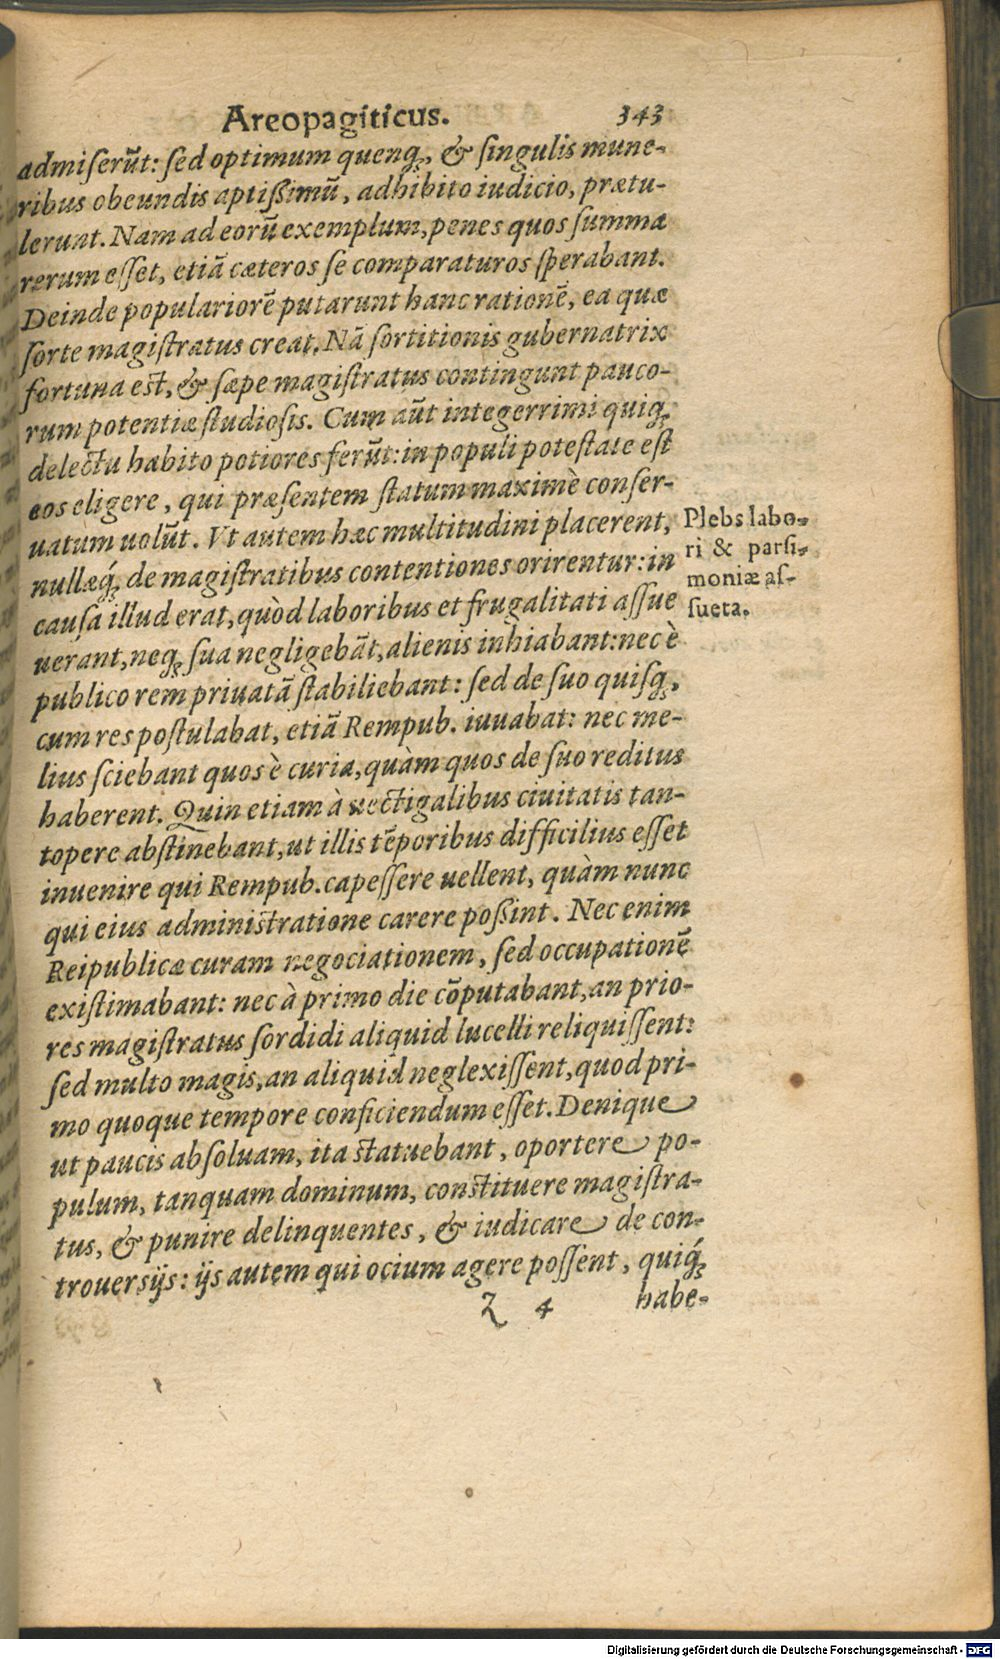 Areopagiticus. 343
admiserūt: sed optimum quenq;, & singulis mune-
ribus obeundis aptißimū, adhibito iudicio, prætu-
lerunt. Nam ad eorū exemplum, penes quos summa
rerum esset, etiā cæteros se comparaturos sperabant.
Deinde populariorē putarunt hanc rationē, ea quæ
sorte magistratus creat. Nā sortitionis gubernatrix
fortuna est, & sæpe magistratus contingunt pauco-
rum potentiæ studiosis. Cum aūt integerrimi quiq;
delectu habito potiores ferūt: in populi potestate est
eos eligere, qui præsentem statum maximè conser-
uatum uolūt. Vt autem hæc multitudini placerent,
nullæq́; de magistratibus contentiones orirentur: in
causa illud erat, quòd laboribus et frugalitati assue
uerant, neq; sua negligebāt, alienis inhiabant: nec è
publico rem priuatā stabiliebant: sed de suo quisq;,
cum res postulabat, etiā Rempub. iuuabat: nec me-
lius sciebant quos è curia, quàm quos de suo reditus
haberent. Quin etiam à uectigalibus ciuitatis tan-
topere abstinebant, ut illis tēporibus difficilius esset
inuenire qui Rempub. capessere uellent, quàm nunc
qui eius administratione carere poßint. Nec enim
Reipublicæ curam negociationem, sed occupationē
existimabant: nec à primo die cōputabant, an prio-
res magistratus sordidi aliquid lucelli reliquissent:
sed multo magis, an aliquid neglexissent, quod pri-
mo quoque tempore conficiendum esset. Denique
ut paucis absoluam, ita statuebant, oportere po-
pulum, tanquam dominum, constituere magistra-
tus, & punire delinquentes, & iudicare de con-
trouersijs: ijs autem qui ocium agere possent, quiq́;
Z 4 habe-
Plebs labo-
ri & parsi-
moniæ as-
sueta.
Digitalisierung gefördert durch die Deutsche Forschungsgemeinschaft - DFG